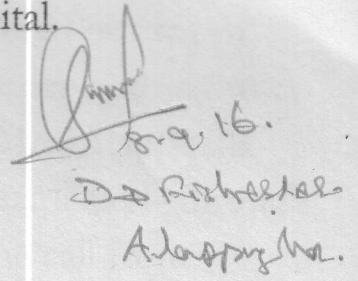 ital.
8.9.16.
DD Fisheries
Alappuzha.